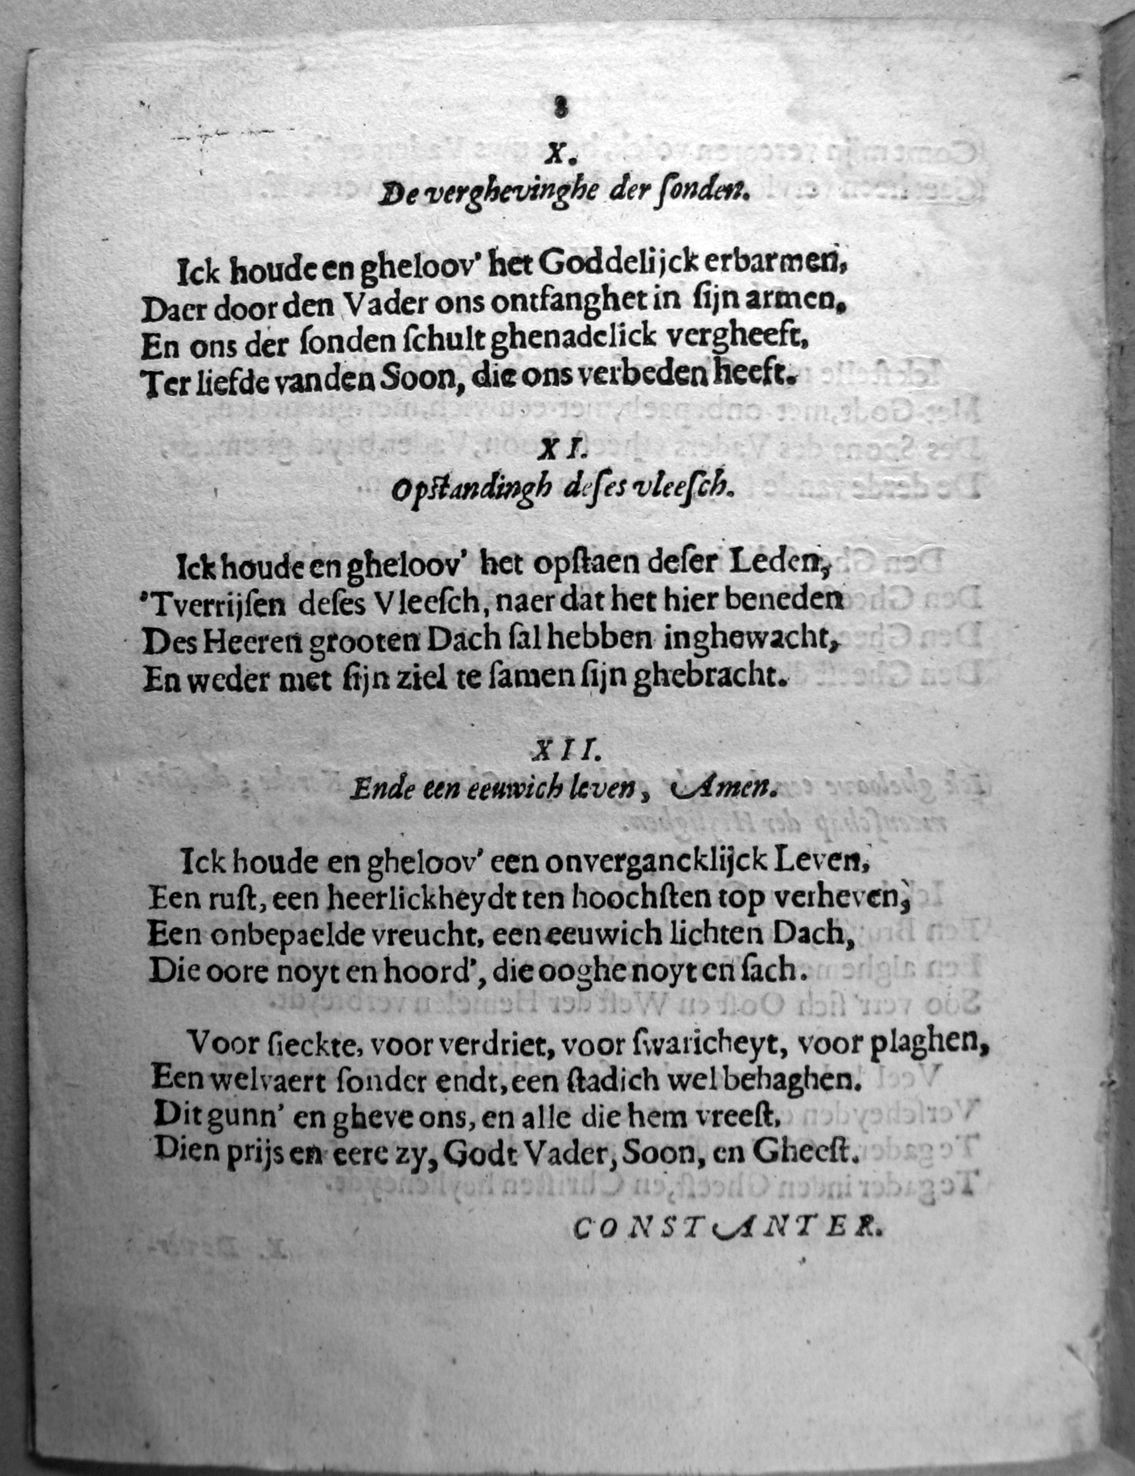 8
X.
De verghevinghe der ſonden.
Ick houde en gheloov' het Goddelijck erbarmen,
Daer door den Vader ons ontfanghet in ſijn armen,
En ons der ſonden ſchult ghenadelick vergheeft,
Ter liefde vanden Soon, die ons verbeden heeft.
XI.
Opſtandingh deſes vleeſch.
Ick houde en gheloov' het opſtaen deſer Leden,
'Tverrijſen deſes Vleeſch, naer dat het hier beneden
Des Heeren grooten Dach ſal hebben inghewacht,
En weder met ſijn ziel te ſamen ſijn ghebracht.
XII.
Ende een eeuwich leven, Amen.
Ick houde en gheloov' een onvergancklijck Leven,
Een ruſt, een heerlickheydt ten hoochſten top verheven,
Een onbepaelde vreucht, een eeuwich lichten Dach,
Die oore noyt en hoord', die ooghe noyt en ſach.
Voor ſieckte, voor verdriet, voor ſwaricheyt, voor plaghen,
Een welvaert ſonder endt, een ſtadich wel behaghen.
Dit gunn' en gheve ons, en alle die hem vreeſt,
Dien prijs en eere zy, Godt Vader, Soon, en Gheeſt.
CONSTANTER.